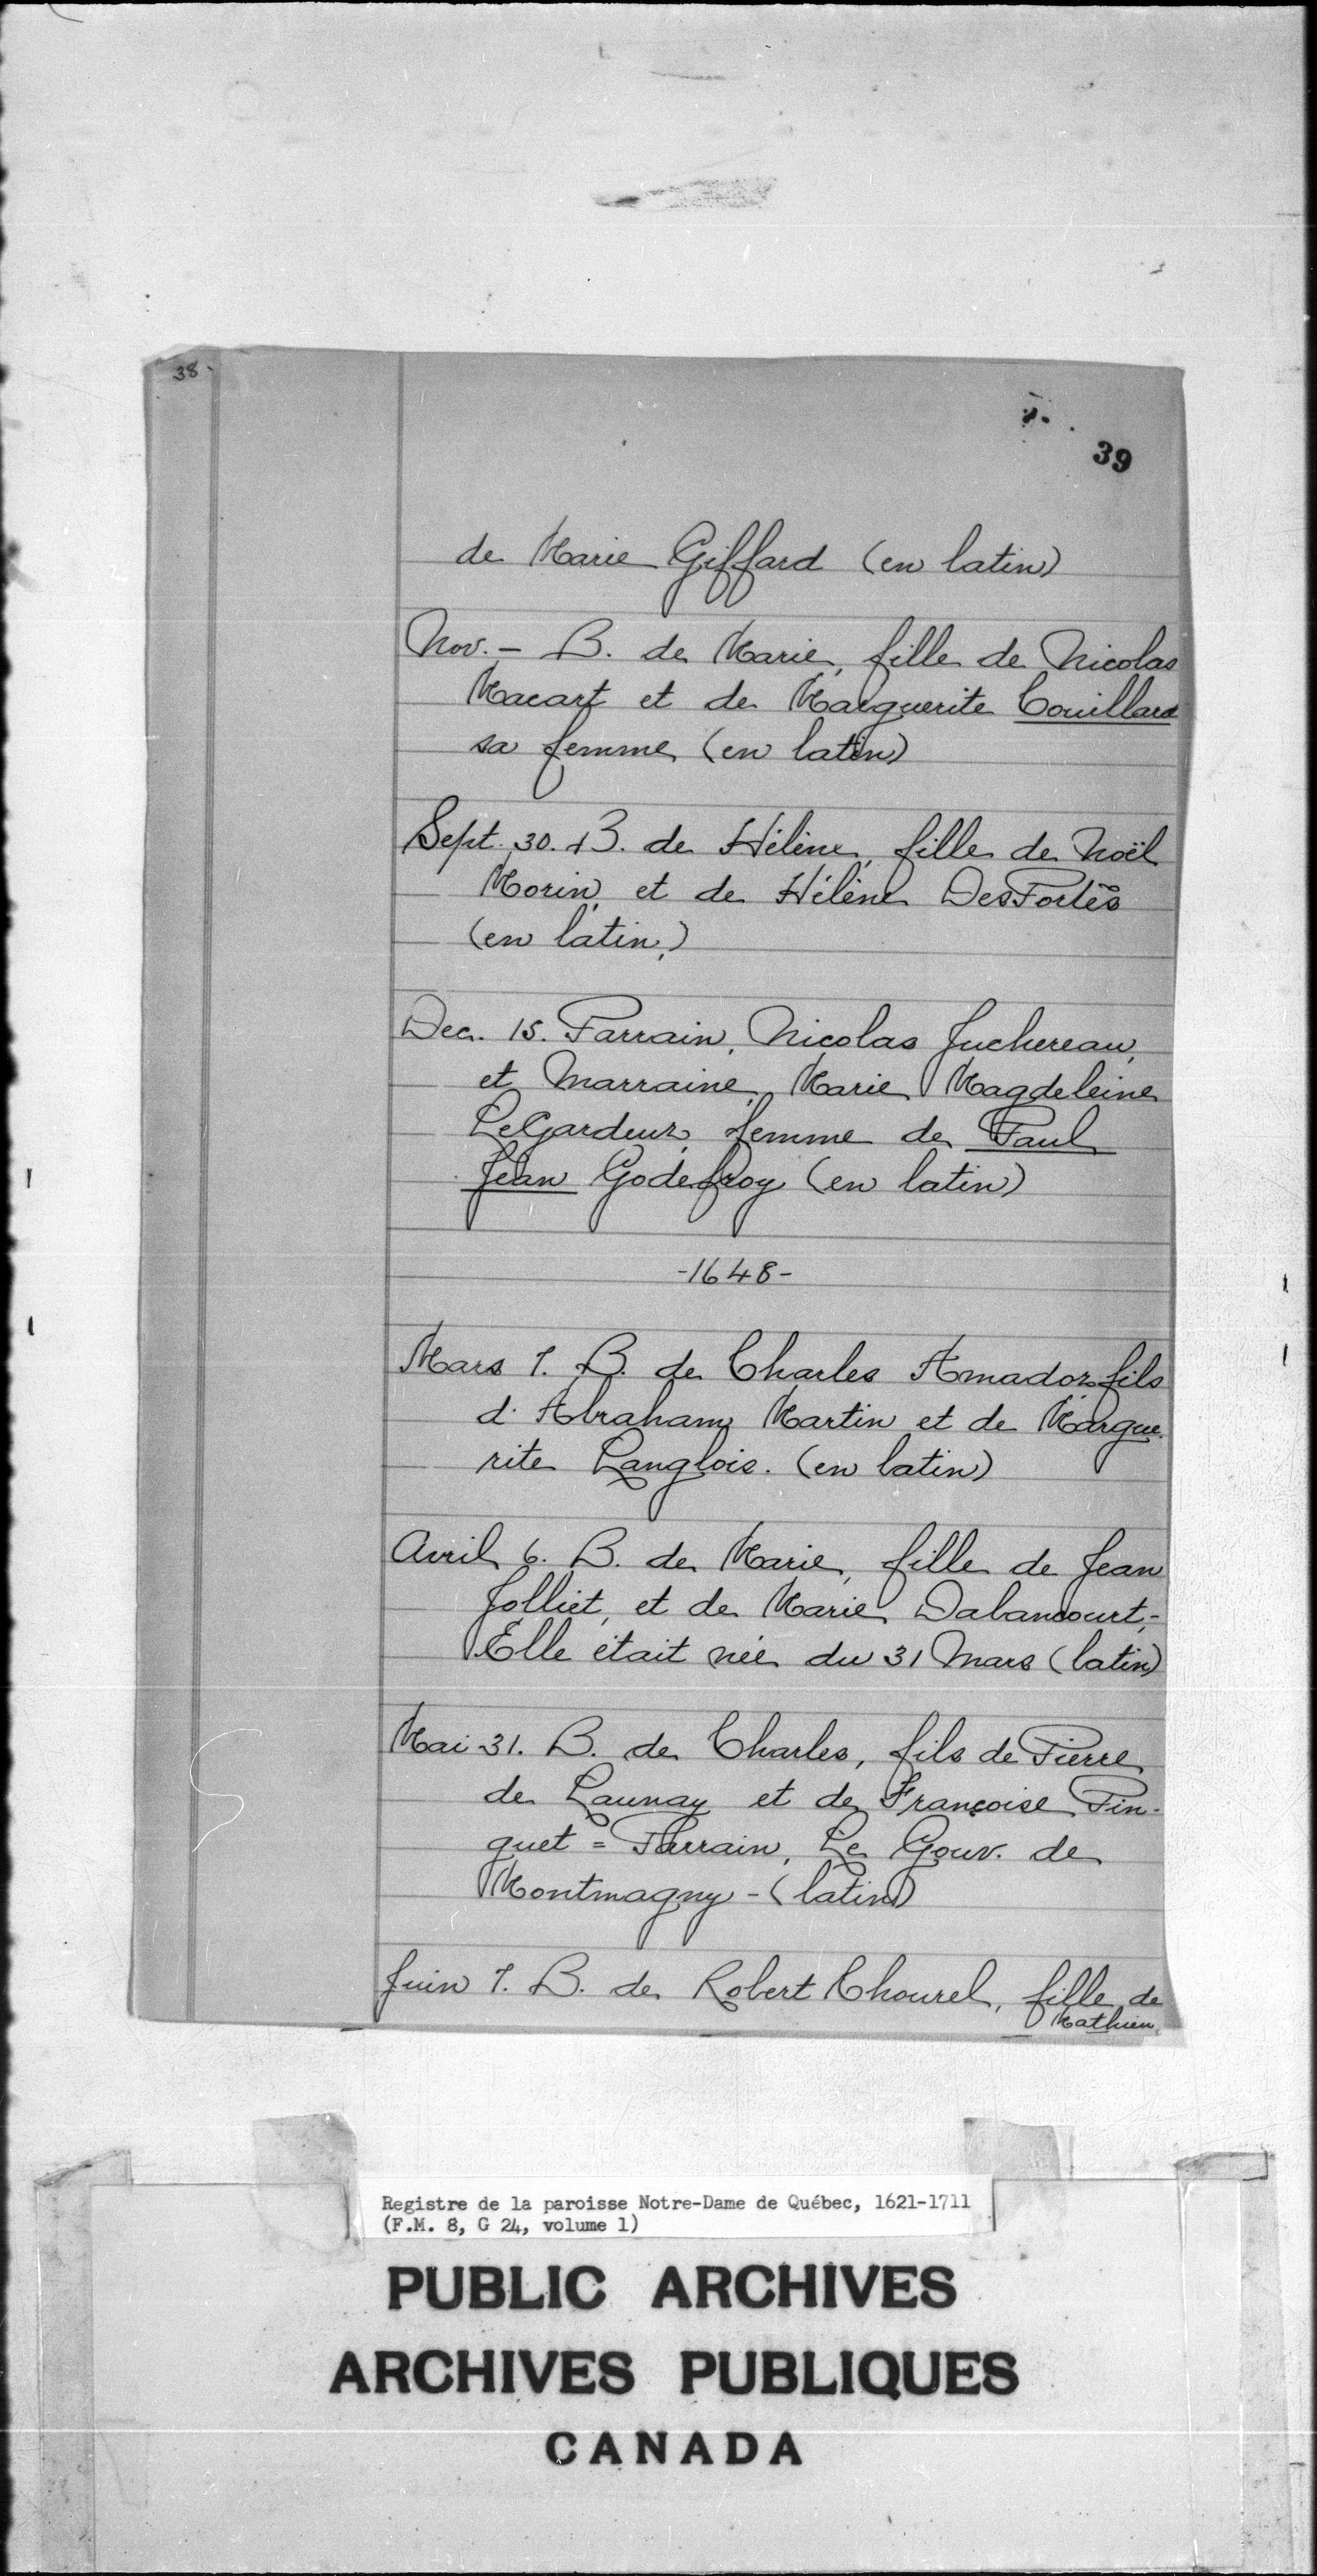 38-
39
de Marie Giffard (en latin)
Nov. - B. de Marie, fille de Nicolas
Macart et de Marguerite Couillard
sa femme (en latin)
Sept. 30. B. de Hélène, fille de Noël
Morin, et de Hélène DesPortes
(en latin,)
Dec. 15. Parrain, Nicolas Juchereau,
et Marraine, Marie Magdeleine
LeGardeur, femme de Paul
Jean Godefroy (en latin)
-1648-
Mars 7. B. de Charles Amador fils
d'Abraham Martin et de Margue-
rite Langlois. (en latin)
Avril 6. B. de Marie, fille de Jean
Jolliet, et de Marie Dabancourt,-
Elle était née du 31 Mars (latin)
Mai 31. B. de Charles, fils de Pierre
de Launay et de Françoise Pin-
guet = Parrain, Le Gouv. de
Montmagny - (latin)
Juin 7. B. de Robert Chourel, fille de
Mathieu
Registre de la paroisse Notre-Dame de Québec, 1621-1711
(F.M. 8, G 24, volume 1)
PUBLIC ARCHIVES
ARCHIVES PUBLIQUES
CANADA